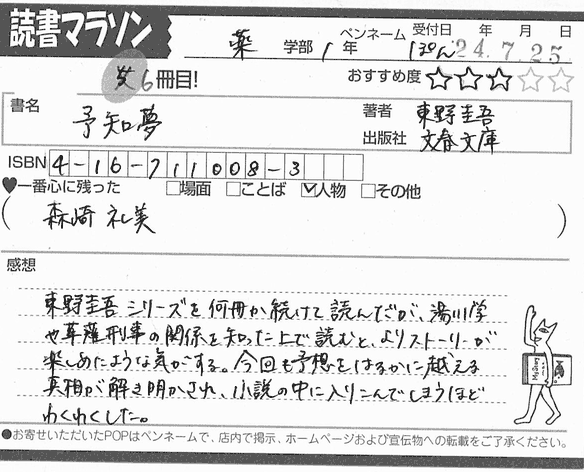 読書マラソン
薬 学部 1 年 ペンネーム ぽん 受付日 24年 7月 25日
6冊目!
おすすめ度 ★★★☆☆
書名 予知夢
著者 東野圭吾
出版社 文春文庫
ISBN 4-16-711008-3
♥一番心に残った □場面 □ことば ☑人物 □その他
(森崎礼美)
感想
東野圭吾シリーズを何冊か続けて読んだが、湯川学
や草薙刑事の関係を知った上で読むと、よりストーリーが
楽しめたような気がする。今回も予想をはるかに越える
真相が解き明かされ、小説の中に入りこんでしまうほど
わくわくした。
●お寄せいただいたPOPはペンネームで、店内で掲示、ホームページおよび宣伝物への転載をご了承ください。